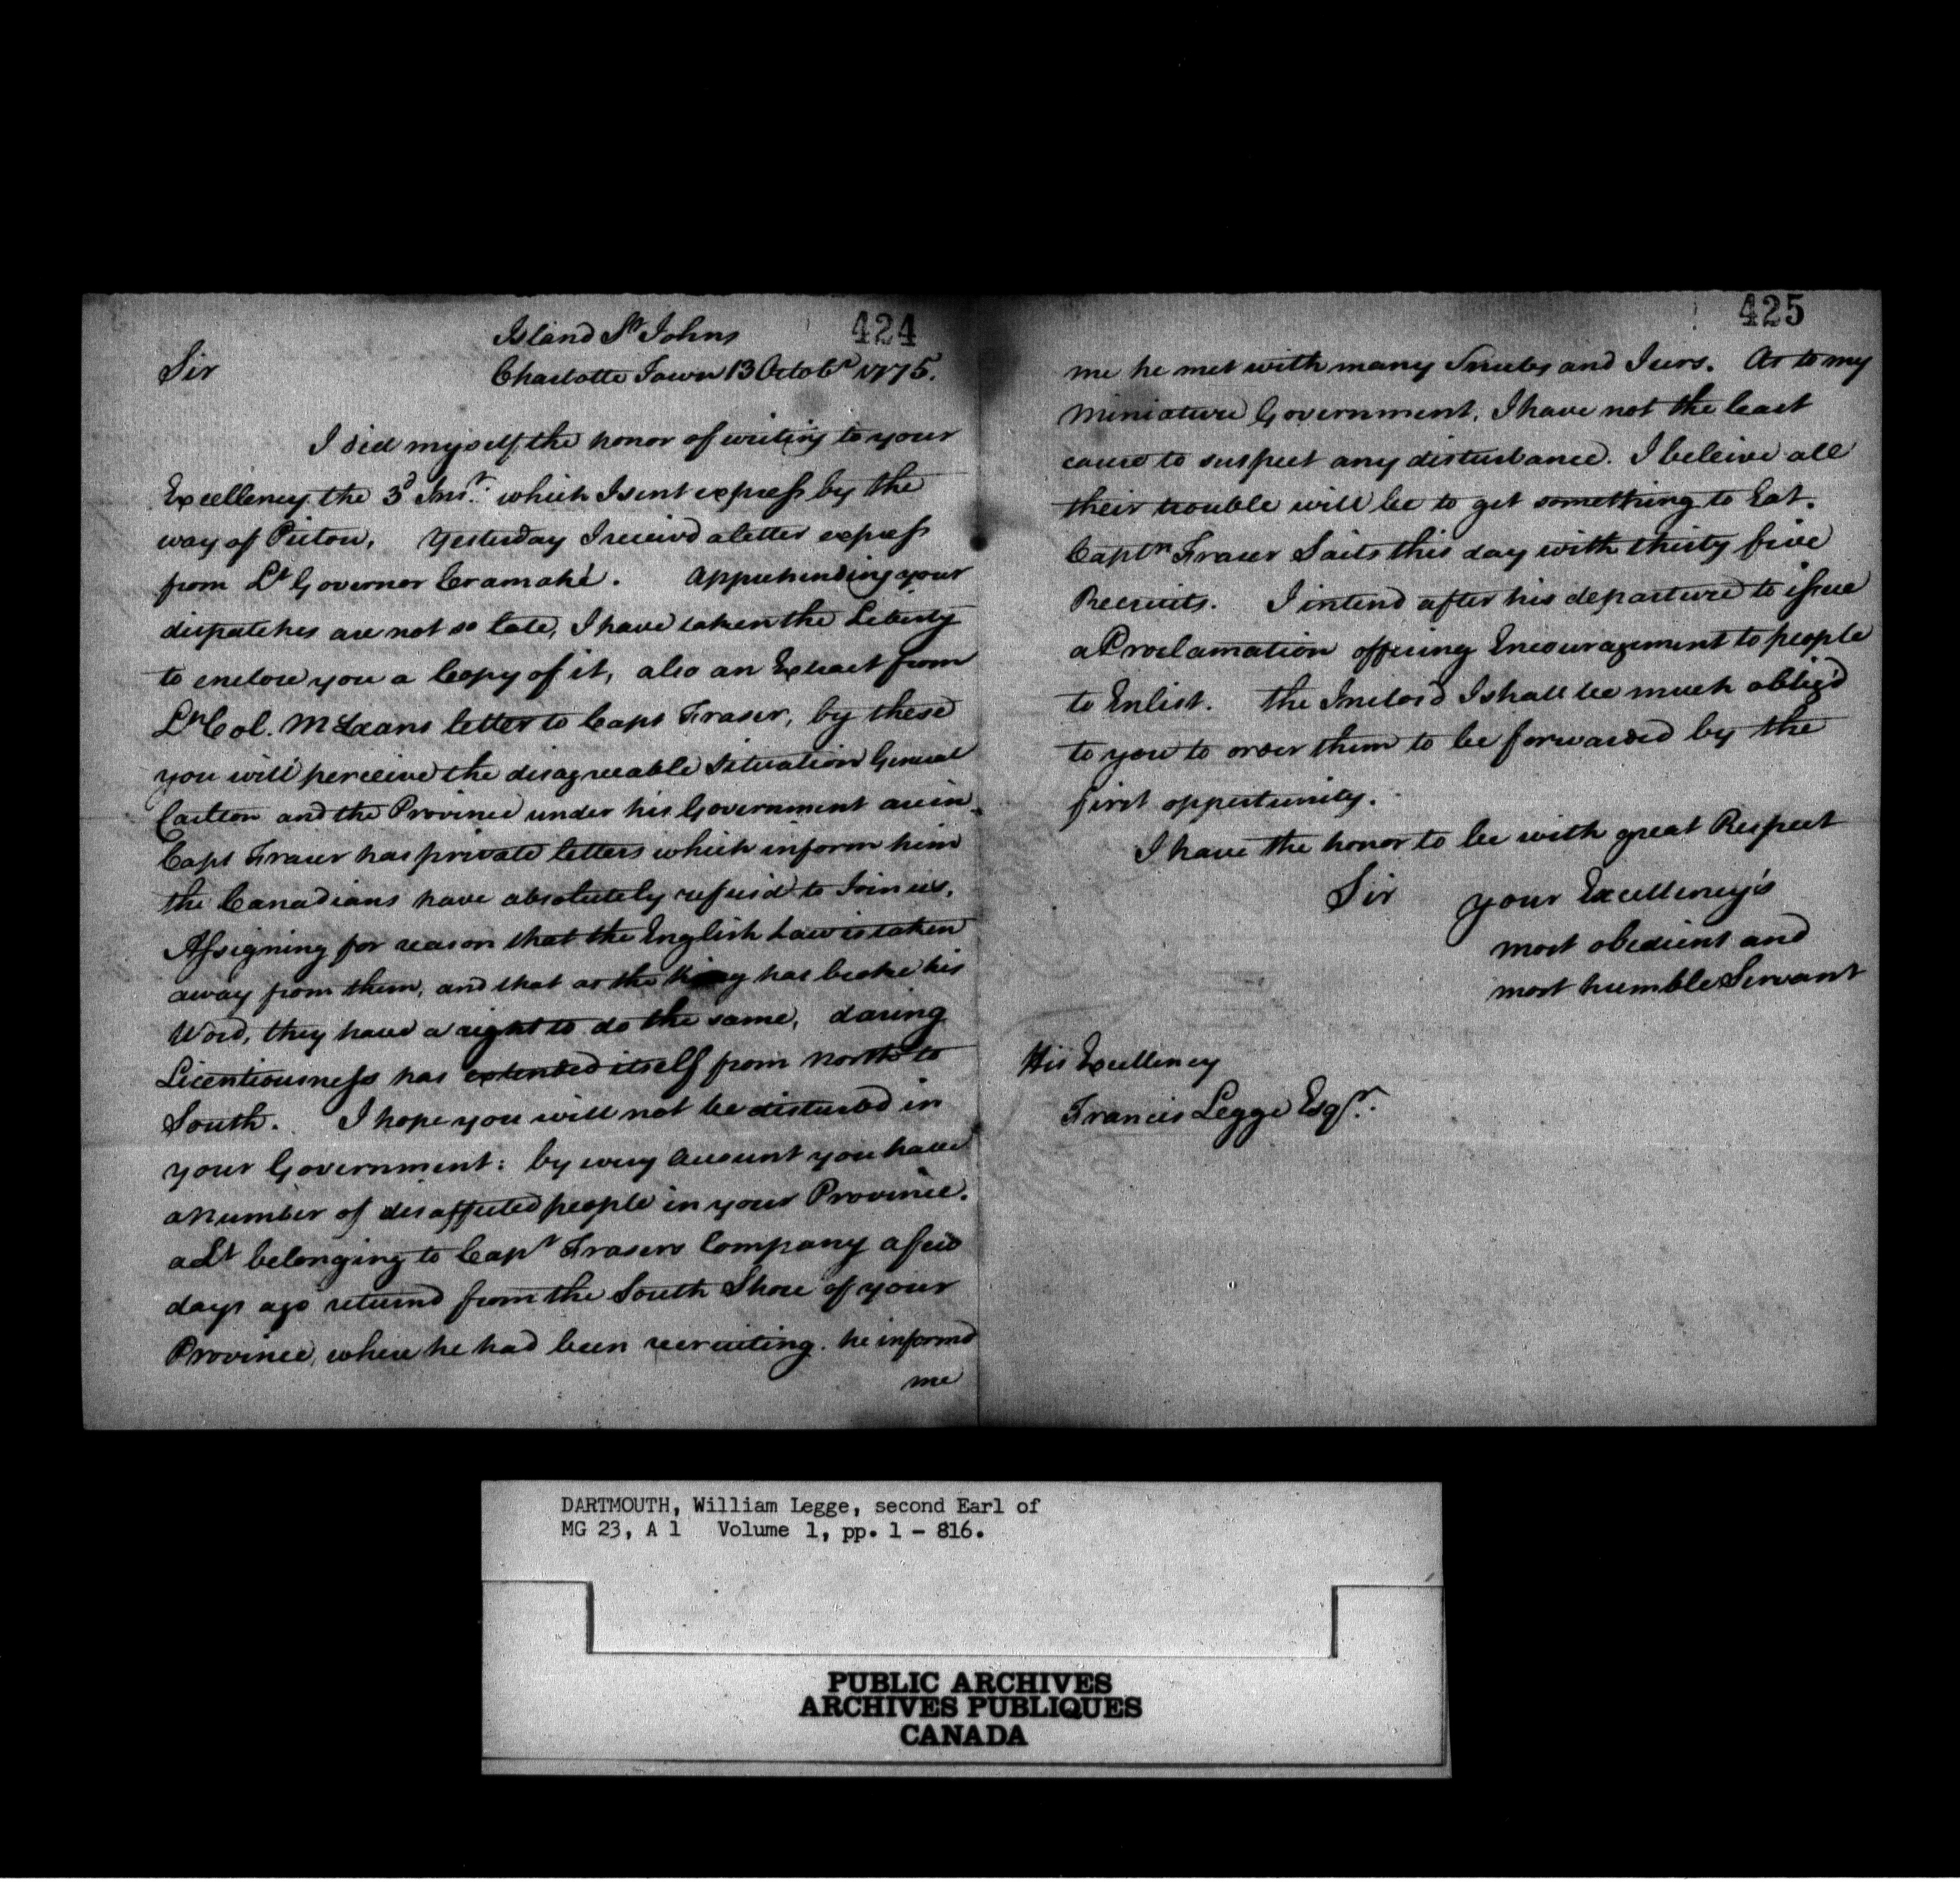 424
Island St Johns
Sir
Charlotte Town 13 Octobr 1775.
I did myself the honor of writing to your
Excellency the 3d Inst. which I sent express by the
way of Pictou, Yesterday I receiv'd a letter express
from Lt Governor Cramahé. Apprehending your
dispatches are not so late, I have taken the Liberty
to enclose you a Copy of it, also an Extract from
Lt Col. McLeans letter to Capt Fraser, by these
you will perceive the disagreeable Situation General
Carlton and the Province under his Government are in.
Capt Fraser has private letters which inform him
the Canadians have absolutely refused to Join us,
Assigning for reason that the English Law is taken
away from them, and that as the King has broke his
Word, they have a right to do the same, daring
Licentiousness has extended itself from North to
South. I hope you will not be disturbed in
your Government: by every Account you have
a Number of disaffected people in your Province.
a Lt belonging to Capt Frasers Company a few
days ago returnd from the South Shore of your
Province, where he had been recruiting. he informd
me
425
me he met with many Snubs and Jeers. As to my
Miniature Government, I have not the least
cause to suspect any disturbance. I beleive all
their trouble will be to get something to Eat.
Captn Fraser Sails this day with thirty five
Recruits. I intend after his departure to issue
a Proclamation offering Encouragement to people
to Enlist. the Inclos'd I shall be much oblig'd
to you to order them to be forwarded by the
first oppertunity.
I have the honor to be with great Respect
Sir your Excellency's
most obedient and
most humble Servant
His Excellency
Francis Legge Esqr.
DARTMOUTH, William Legge, second Earl of
MG 23, A 1 Volume 1, pp. 1 - 816.
PUBLIC ARCHIVES
ARCHIVES PUBLIQUES
CANADA